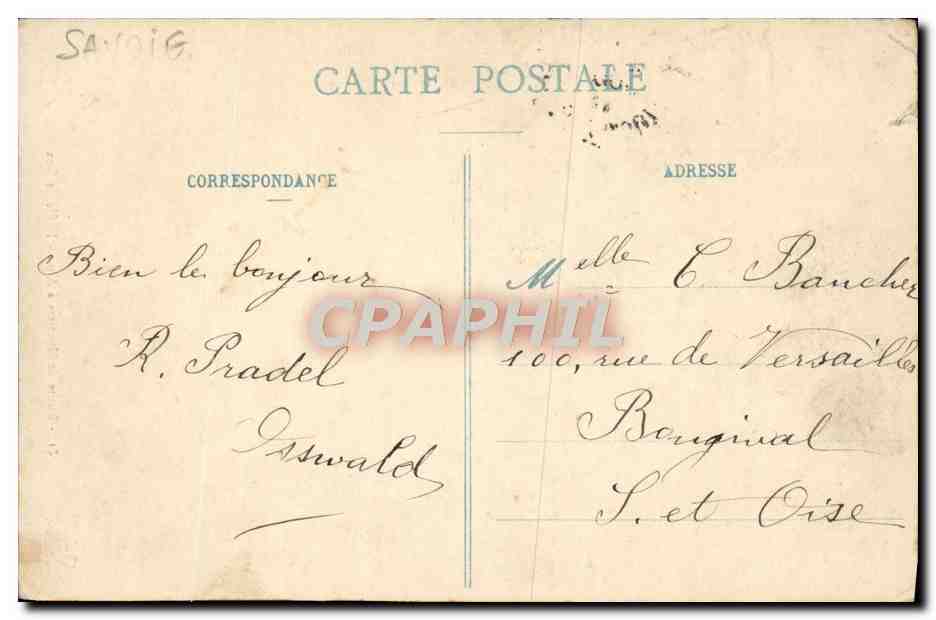 SAVOIE
CARTE POSTALE
CORRESPONDANCE
ADRESSE
Bien le bonjour
R. Pradel
Isswald
Melle C. Bancher
100, rue de Versailles
Bougival
S. et Oise
CPAPHIL